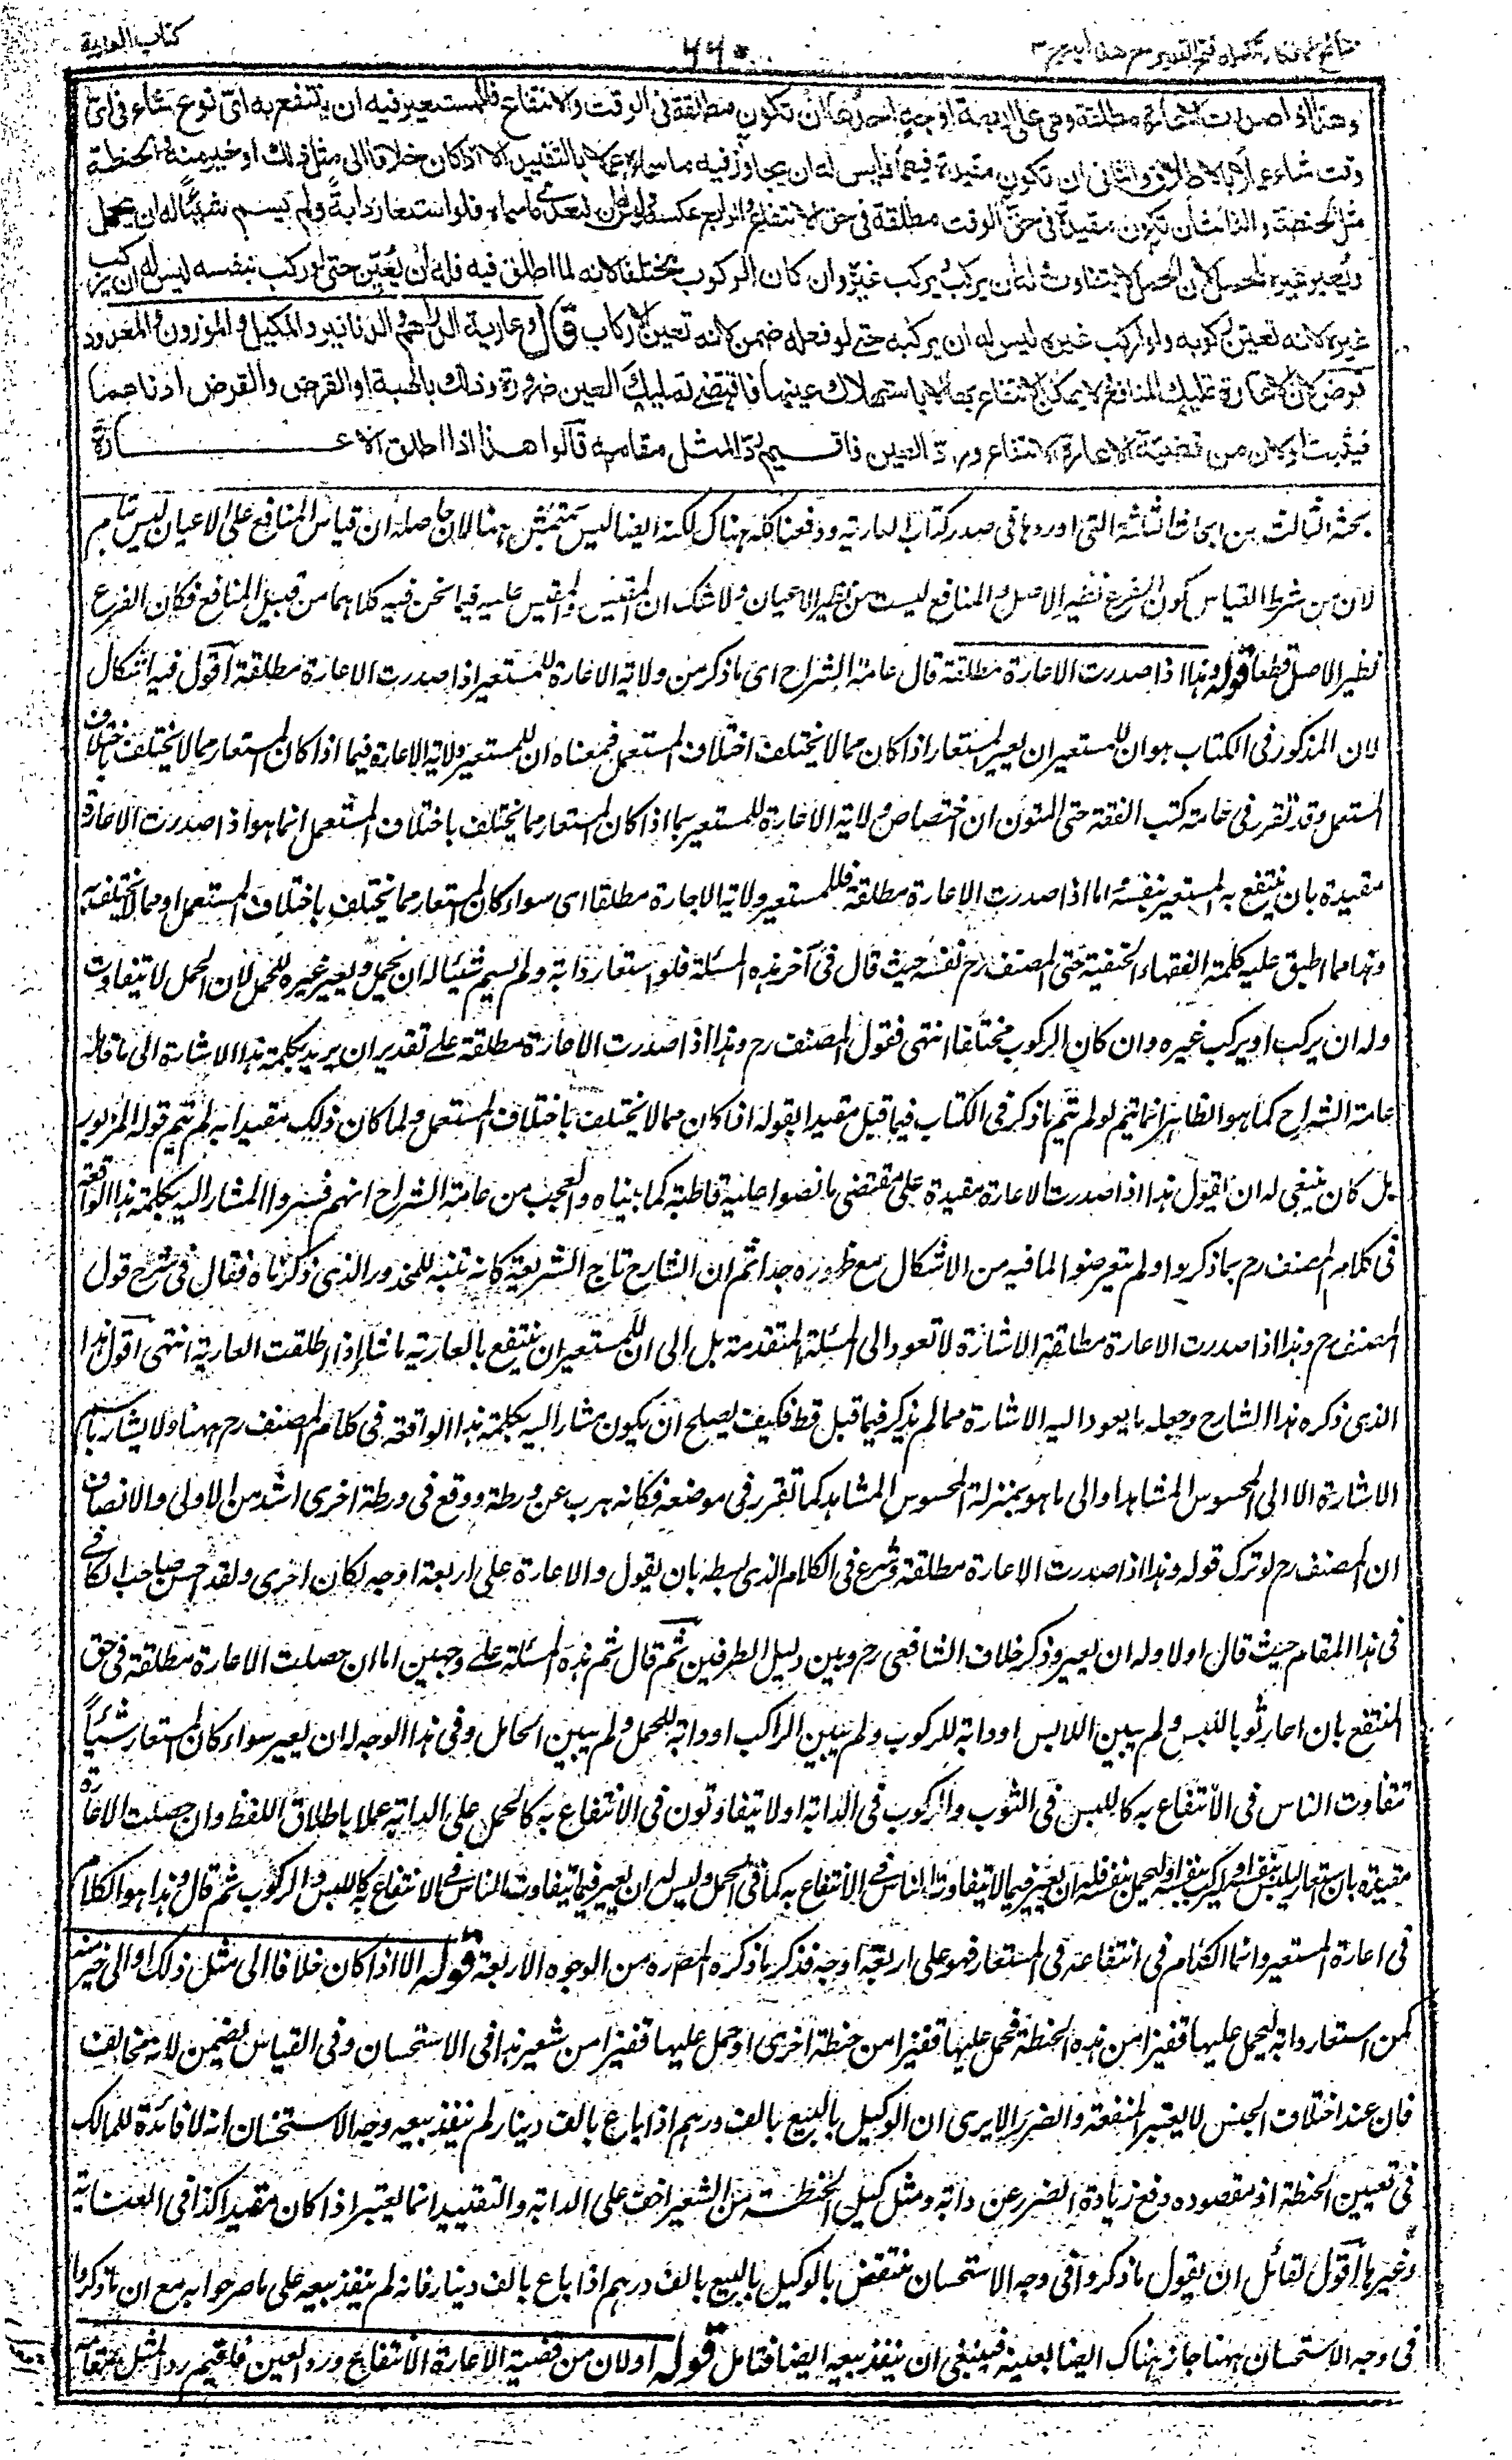 نتائج الافكار تكملة فتح القدير مع هداية ج ٣
٦٦٠
كتاب العارية
وهذا اذا صدرت الاعارة مطلقة وهي على اربعة اوجه احدها ان تكون مطلقة في الوقت والانتفاع فللمستعير فيه ان ينتفع به اي نوع شاء في اي
وقت شاء عملا بالاطلاق والثاني ان تكون مقيدة فيهما فليس له ان يجاوز فيه ما سماه عملا بالتقييد الا اذا كان خلافا الى مثل ذلك او خير منه والحنطة
مثل الحنطة والثالث ان تكون مقيدة في حق الوقت مطلقة في حق الانتفاع والرابع عكسه وليس له ان يتعدى ما سماه فلو استعار دابة ولم يسم شيئا له ان يحمل
ويعير غيره للحمل لان الحمل لا يتفاوت وله ان يركب ويركب غيره وان كان الركوب مختلفا لانه لما اطلق فيه فله ان يعين حتى لو ركب بنفسه ليس له ان يركب
غيره لانه تعين ركوبه ولو اركب غيره ليس له ان يركبه حتى لو فعله ضمن لانه تعين الاركاب قال وعارية الدراهم والدنانير والمكيل والموزون والمعدود
قرض لان الاعارة تمليك المنافع ولا يمكن الانتفاع بها الا باستهلاك عينها فاقتضى تمليك العين ضرورة وذلك بالهبة او القرض والقرض ادناهما
فيثبت او لان من قضية الاعارة الانتفاع ورد العين فاقيم رد المثل مقامه قالوا هذا اذا اطلق الاعارة
بحثه الثالث من ابحاث الثلثة التي اوردها في صدر كتاب العارية ودفعنا كله هناك لكنه ايضا ليس بمتمش ههنا لان حاصله ان قياس المنافع على الاعيان ليس بتام
لان من شرط القياس كون الفرع نظير الاصل والمنافع ليست من نظير الاعيان ولا شك ان المقيس والمقيس عليه فيما نحن فيه كلاهما من قبيل المنافع فكان الفرع
نظير الاصل قطعا قوله وهذا اذا صدرت الاعارة مطلقة قال عامة الشراح اي ما ذكر من ولاية الاعارة للمستعير اذا صدرت الاعارة مطلقة اقول فيه اشكال
لان المذكور في الكتاب هو ان للمستعير ان يعير المستعار اذا كان مما لا يختلف اختلاف المستعمل فمعناه ان للمستعير ولاية الاعارة فيما اذا كان المستعار مما لا يختلف باختلاف
المستعمل وقد تقرر في عامة كتب الفقه حتى المتون ان اختصاص ولاية الاعارة للمستعير بما اذا كان المستعار مما يختلف باختلاف المستعمل انما هو اذا صدرت الاعارة
مقيدة بان ينتفع به المستعير بنفسه اما اذا صدرت الاعارة مطلقة فللمستعير ولاية الاجارة مطلقا اي سواء كان المستعار مما يختلف باختلاف المستعمل او مما لا يختلف به
وهذا مما اطبق عليه كلمة الفقهاء الحنفية حتى المصنف رح نفسه حيث قال في آخر هذه المسئلة فلو استعار دابة ولم يسم شيئا له ان يحمل ويعير غيره للحمل لان الحمل لا يتفاوت
وله ان يركب او يركب غيره وان كان الركوب مختلفا انتهى فقول المصنف رح وهذا اذا صدرت الاعارة مطلقة على تقدير ان يريد بكلمة هذا الاشارة الى ما قاله
عامة الشراح كما هو الظاهر انما يتم لو لم يتم ما ذكر في الكتاب فيما قبل مقيدا بقوله اذا كان مما لا يختلف باختلاف المستعمل ولما كان ذلك مقيدا به لم يتم قوله المزبور
بل كان ينبغي له ان يقول هذا اذا صدرت الاعارة مقيدة على مقتضى ما نصوا عليه قاطبة كما بيناه والعجب من عامة الشراح انهم فسروا المشار اليه بكلمة هذا الواقعة
في كلام المصنف رح بما ذكروا ولم يتعرضوا لما فيه من الاشكال مع ظهوره جدا ثم ان الشارح تاج الشريعة كانه تنبه للمحذور الذي ذكرناه فقال في شرح قول
المصنف رح وهذا اذا صدرت الاعارة مطلقة الاشارة لا تعود الى المسئلة المتقدمة بل الى ان للمستعير ان ينتفع بالعارية ما شاء اذا اطلقت العارية انتهى اقول هذا
الذي ذكره هذا الشارح وجعله ما يعود اليه الاشارة مما لم يذكر فيما قبل قط فكيف يصلح ان يكون مشارا اليه بكلمة هذا الواقعة في كلام المصنف رح ههنا ولا يشار باسم
الاشارة الا الى المحسوس المشاهد او الى ما هو بمنزلة المحسوس المشاهد كما تقرر في موضعه فكانه هرب عن ورطة ووقع في ورطة اخرى اشد من الاولى والانصاف
ان المصنف رح لو ترك قوله وهذا اذا صدرت الاعارة مطلقة وشرع في الكلام الذي بسطه بان يقول والاعارة على اربعة اوجه لكان احرى ولقد احسن صاحب الكافي
في هذا المقام حيث قال اولا وله ان يعير وذكر خلاف الشافعي رح وبين دليل الطرفين ثم قال ثم هذه المسئلة على وجهين اما ان حصلت الاعارة مطلقة في حق
المنتفع بان اعار ثوبا للبس ولم يبين اللابس او دابة للركوب ولم يبين الراكب او دابة للحمل ولم يبين الحامل وفي هذا الوجه له ان يعير سواء كان المستعار شيئا
تتفاوت الناس في الانتفاع به كاللبس في الثوب والركوب في الدابة او لا يتفاوتون في الانتفاع به كالحمل على الدابة عملا باطلاق اللفظ وان حصلت الاعارة
مقيدة بان استعار ليلبس بنفسه او ليركب بنفسه او ليحمل بنفسه فله ان يعير فيما لا يتفاوت الناس في الانتفاع به كما في الحمل وليس له ان يعير فيما يتفاوت الناس في الانتفاع به كاللبس والركوب ثم قال وهذا هو الكلام
في اعارة المستعير وانما الكلام في انتفاعه في المستعار فهو على اربعة اوجه فذكر ما ذكره المص ره من الوجوه الاربعة قوله الا اذا كان خلافا الى مثل ذلك او الى خير منه
كمن استعار دابة ليحمل عليها قفيزا من هذه الحنطة فحمل عليها قفيزا من حنطة اخرى او حمل عليها قفيزا من شعير هذا في الاستحسان وفي القياس يضمن لانه مخالف
فان عند اختلاف الجنس لا يعتبر المنفعة والضرر الا يرى ان الوكيل بالبيع بالف درهم اذا باع بالف دينار لم ينفذ بيعه وجه الاستحسان انه لا فائدة للمالك
في تعيين الحنطة اذ مقصوده دفع زيادة الضرر عن دابته ومثل كيل الحنطة من الشعير اخف على الدابة والتقييد انما يعتبر اذا كان مقيدا كذا في العناية
وغيرها اقول لقائل ان يقول ما ذكروا في وجه الاستحسان منتقض بالوكيل بالبيع بالف درهم اذا باع بالف دينار فانه لم ينفذ بيعه على ما صرحوا به مع ان ما ذكروا
في وجه الاستحسان ههنا جاز هناك ايضا بعينه فينبغي ان ينفذ بيعه ايضا فتامل قوله او لان من قضية الاعارة الانتفاع ورد العين فاقيم رد المثل مقامه